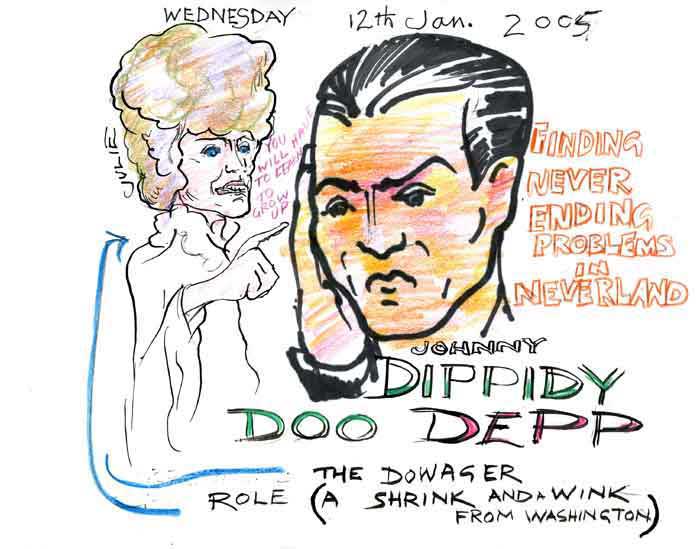 WEDNESDAY 12th Jan. 2005
JULIE
YOU
WILL HAVE
TO
TO
GROW
UP
FINDING
NEVER
ENDING
PROBLEMS
IN
NEVERLAND
JOHNNY
DIPPIDY
DOO DEPP
ROLE THE DOWAGER
(A SHRINK AND A WINK
FROM WASHINGTON)